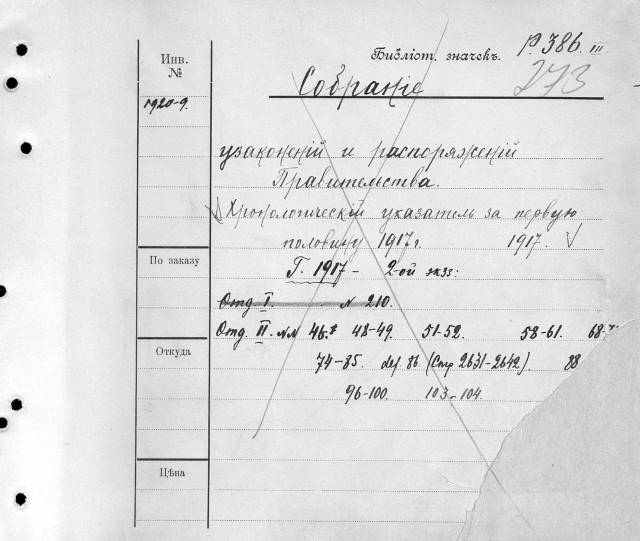 Инв.
№
1920-9.
По заказу
Откуда
Цѣна
Библіот. значекъ. Р. 386 III
273
Собраніе
узаконеній и распоряженій
Правительства.
Хронологическій указатель за первую
половину 1917 г. 1917.
Г. 1917 - 2-ой экз:
Отд. I. N 210.
Отд. II. NN 46. 48-49. 51-52. 58-61. 68-
74-85. def. 86 (Стр 2631-2642). 88
96-100. 103-104.